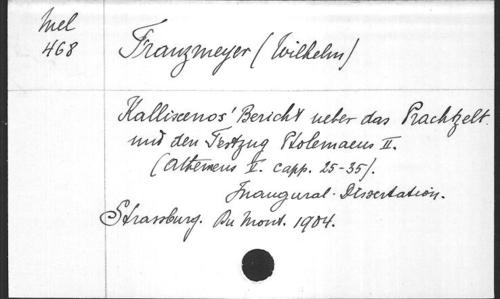 Mel
468
Franzmeyer (Wilhelm)
Kallixenos' Bericht ueber das Prachtzelt
und den Festzug Ptolemaeus II.
(Athenaeus V. capp. 25-35).
Inaugural-Dissertation.
Strassburg. Du Mont. 1904.